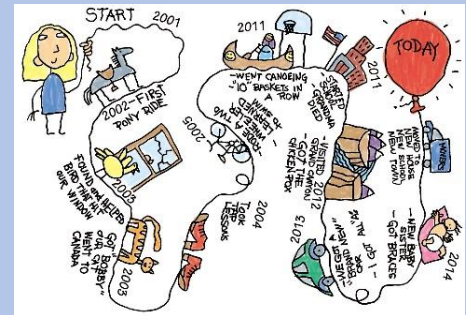 START 2001
2002-FIRST
PONY RIDE
2003
FOUND and HELPED
BIRD THAT HIT
OUR WINDOW
2003
GOT "BOBBY"
OUR CAT
WENT TO
CANADA
TOOK
TAP
LESSONS
2004
2005
RODE TWO
WHEELER
LEARNED
TO SWIM
2011
-WENT CANOEING
-"10" BASKETS IN
A ROW
2011
STARTED
SCHOOL
GRANDMA
DIED
VISITED 2012
GRAND CANYON
-GOT THE
CHICKEN POX
2013
-WE GOT A
BRAND NEW
CAR
-I GOT
ALL A's
2014
-NEW BABY
SISTER
-GOT BRACES
MOVERS
MOVED TO
NEW HOUSE
NEW SCHOOL
NEW TOWN
TODAY